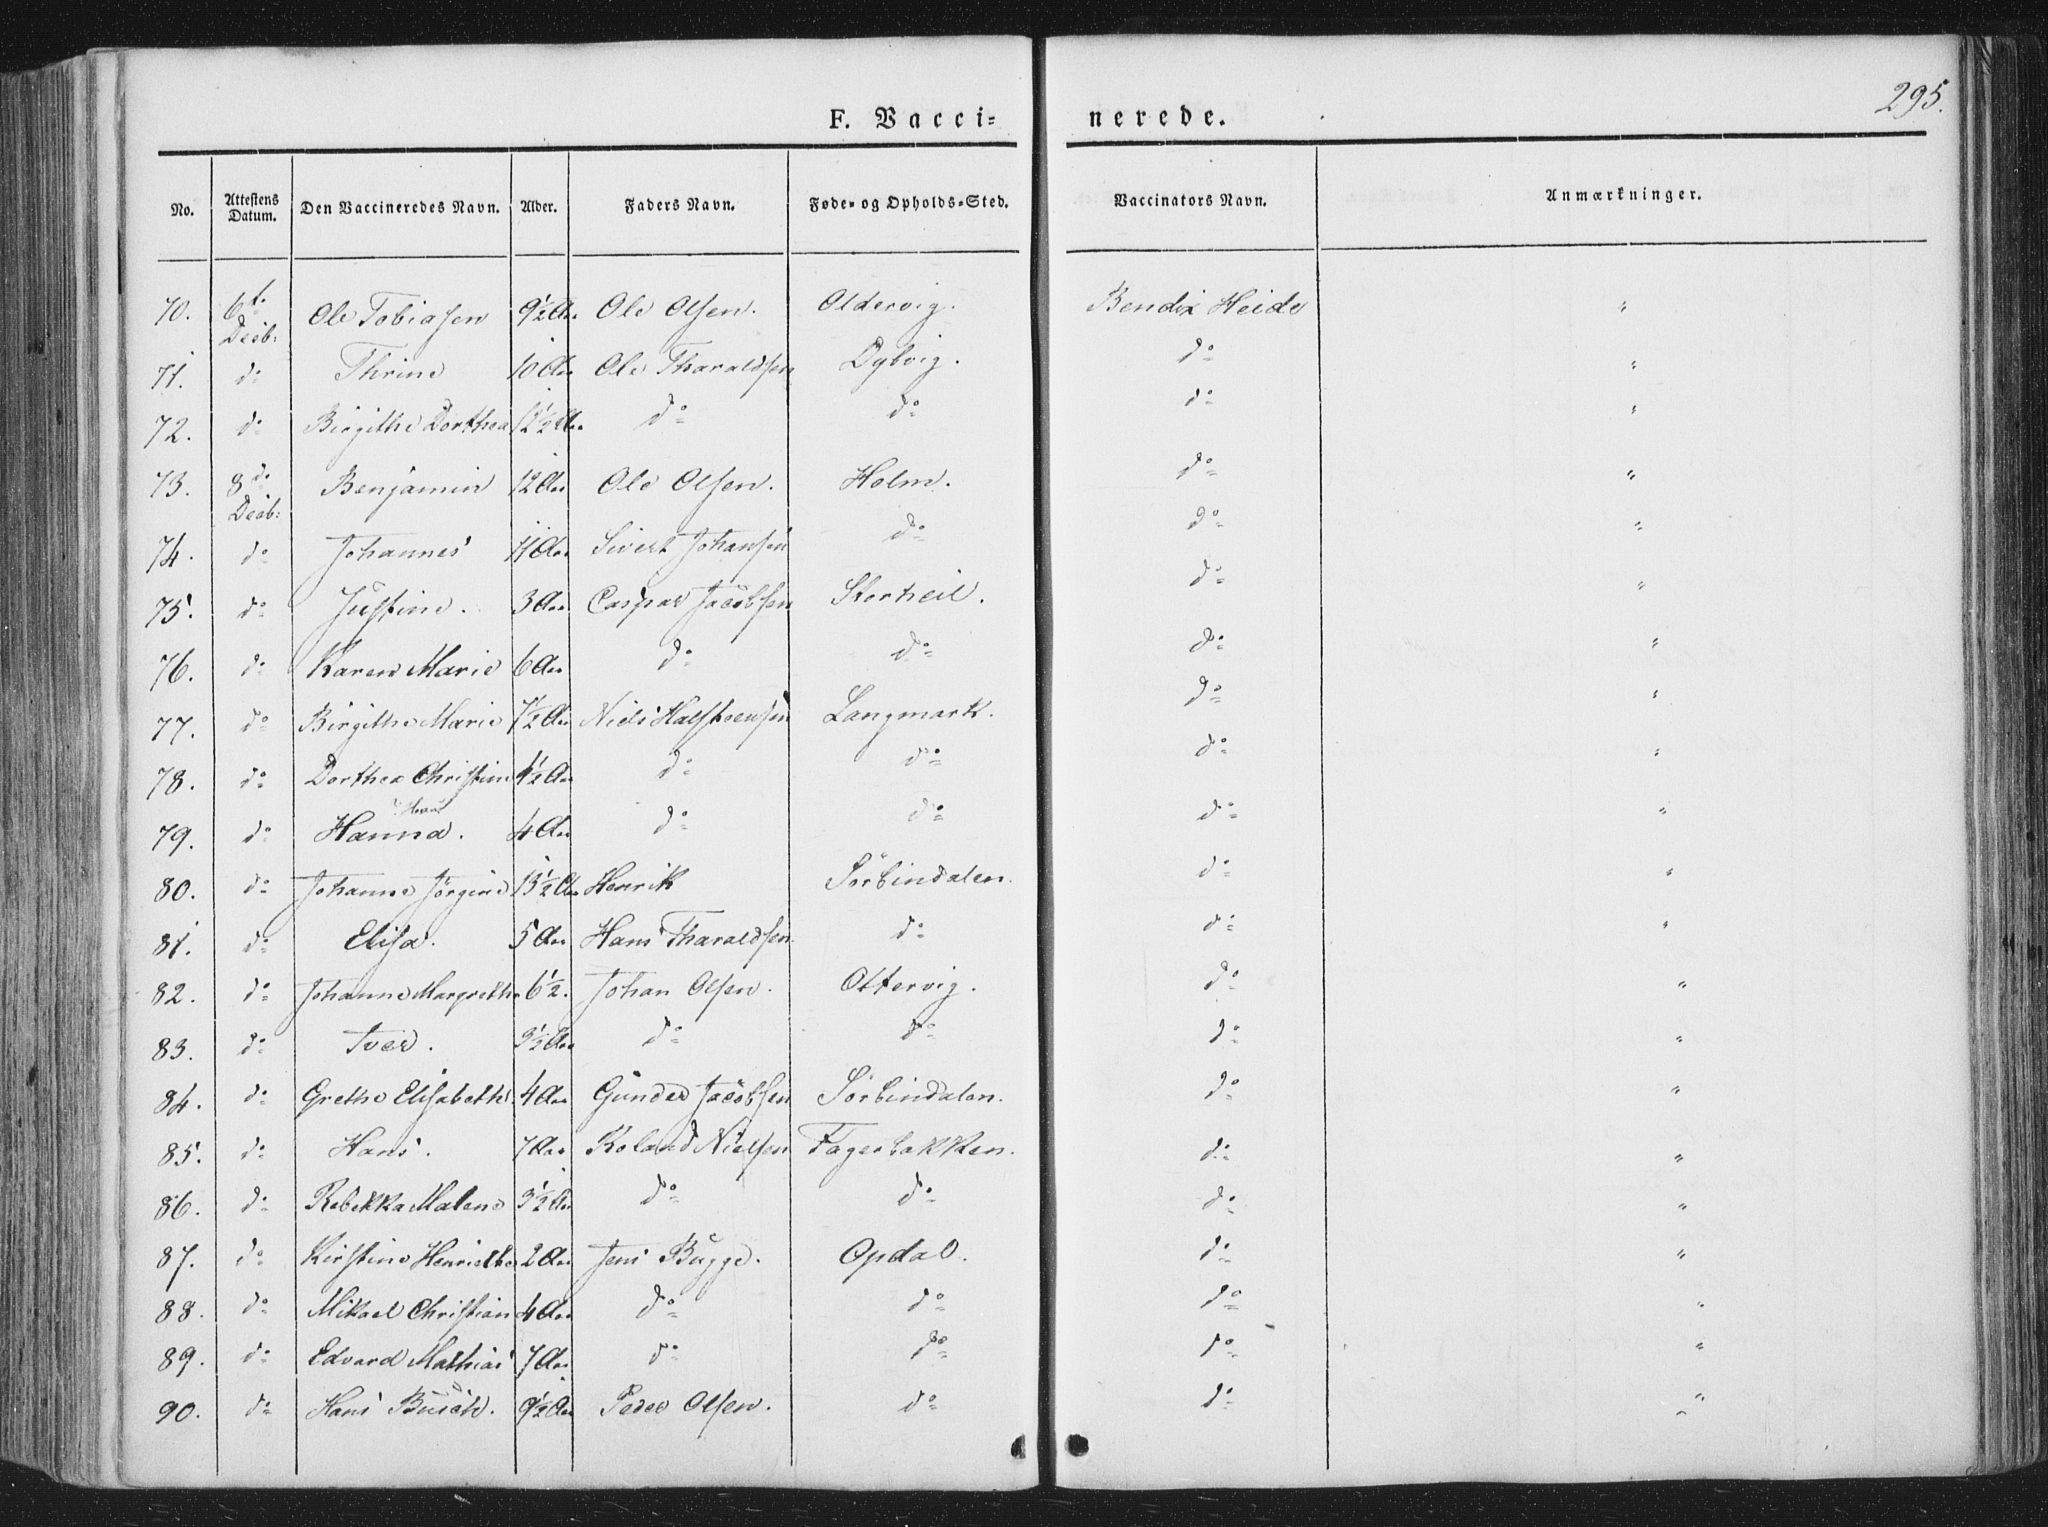 295.
F. Vacci= nerede.
No. Attestens Datum. Den Vaccineredes Navn. Alder. Faders Navn. Føde- og Opholds-Sted. Vaccinators Navn. Anmærkninger.
70. 6t. Decb: Ole Tobiasen 9½ Aar Ole Olsen. Oldervig. Bendix Heide "
71. do Thrine 10 Aar Ole Tharaldsen Dybvig. do "
72. do Birgithe Dorthea 1½ Aar do do do "
73. 8de Decb: Benjamin 12 Aar Ole Olsen. Holm. do "
74. do Johannes 11 Aar Sivert Johansen do do "
75. do Justine. 3 Aar Caspar Jacobsen Storheil. do "
76. do Karen Marie 6 Aar do do do "
77. do Birgithe Marie 7½ Aar Niels Halsteensen Langmark. do "
78. do Dorthea Christine 4½ Aar do do do "
79. do Hanna. 4 Aar do do do "
80. do Johanne Jörgine 13½ Aar Henrik Sörbindalen. do "
81. do Elisa. 5 Aar Hans Tharaldsen do do "
82. do Johanne Margrethe 6½. Johan Olsen. Ottervig. do "
83. do Iver. 3½ Aar do do do "
84. do Grethe Elisabeth 4 Aar Gunder Jacobsen Sörbindalen. do "
85. do Hans. 7 Aar Roland Nielsen Fagerbakken. do "
86. do Rebekka Malene 3½ Aar do do do "
87. do Kirstine Henriethe 2 Aar Jens Bugge. Opdal. do "
88. do Mikael Christian 4 Aar do do do "
89. do Edvard Mathias 7 Aar do do do "
90. do Hans Busch. 9½ Aar Peder Olsen. do do "